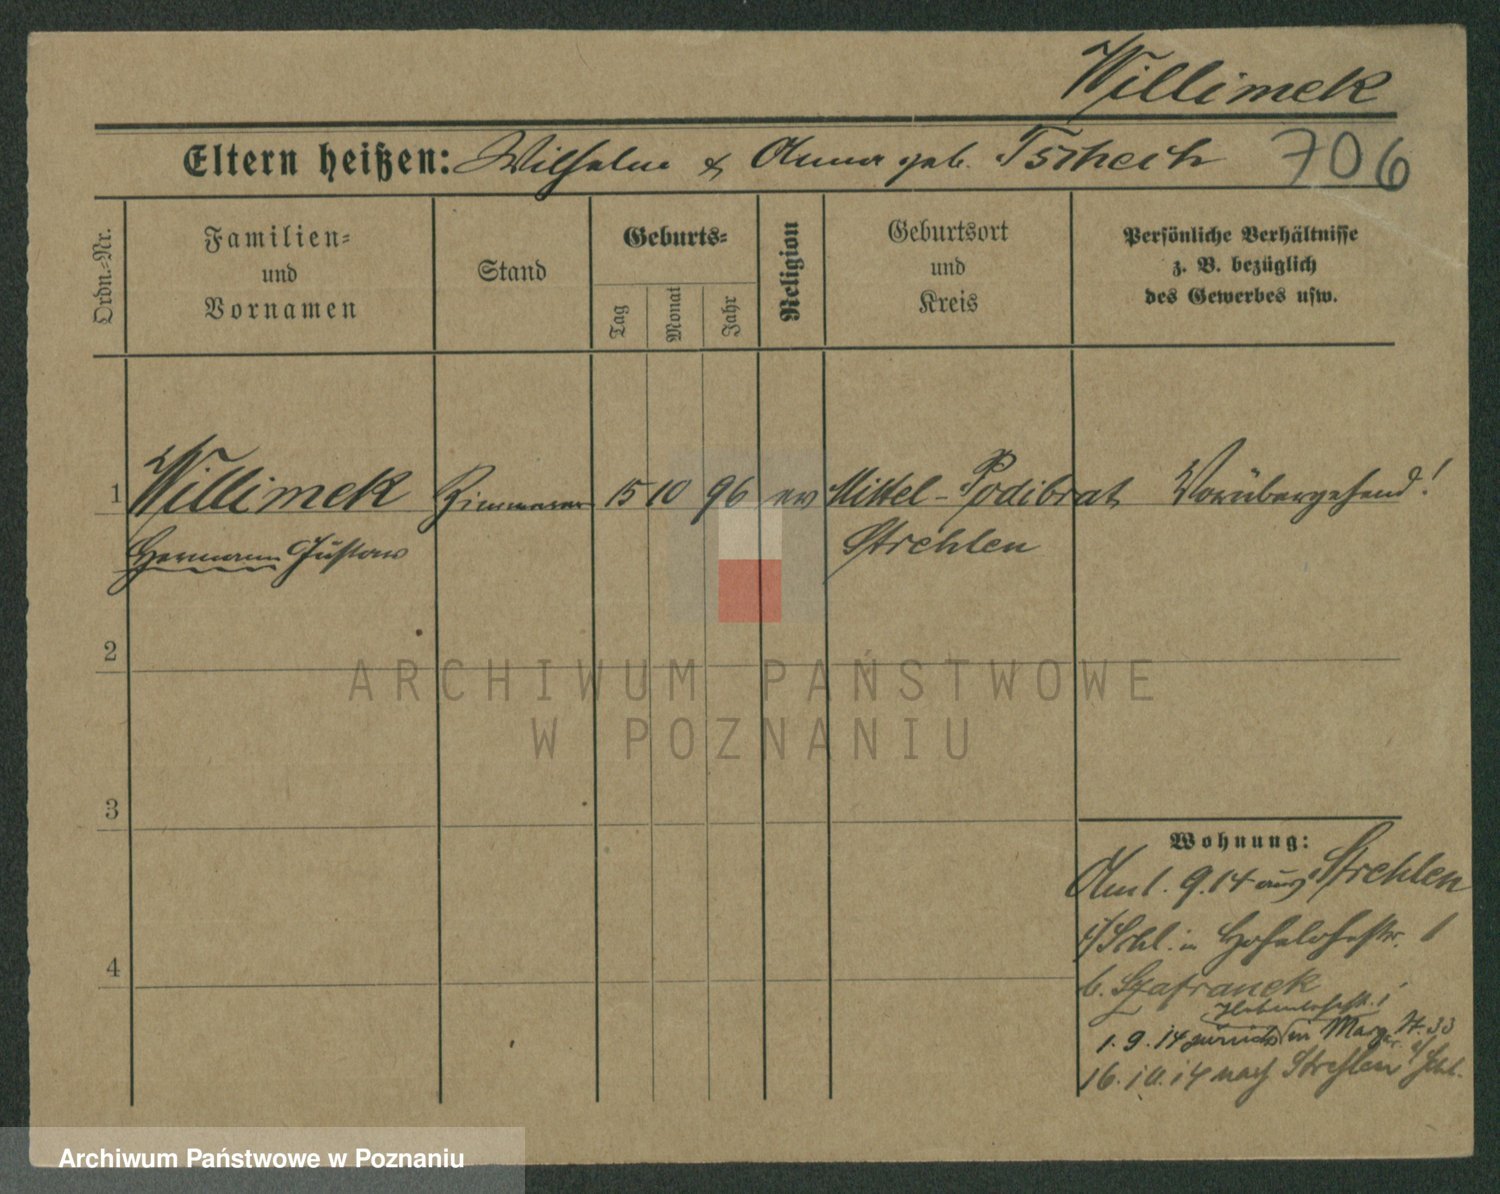 Willimek
Eltern heißen: Wilhelm & Anna geb. Tschech 706
Ordn.-Nr.
Familien-
und
Vornamen
Stand
Geburts-
Tag
Monat
Jahr
Religion
Geburtsort
und
Kreis
Persönliche Verhältnisse
z. B. bezüglich
des Gewerbes usw.
1 Willimek Zimmerer 15 10 96 ev Mittel-Podibrat Vorübergehend!
Hermann Gustav Strehlen
2
ARCHIWUM PAŃSTWOWE
W POZNANIU
3
Wohnung:
Am 1. 9. 14 aus Strehlen
i/Schl. in 1
b. Szafranek
1. 9. 14 zurück in
16. 10. 14 nach Strehlen i/Schl.
4
Archiwum Państwowe w Poznaniu